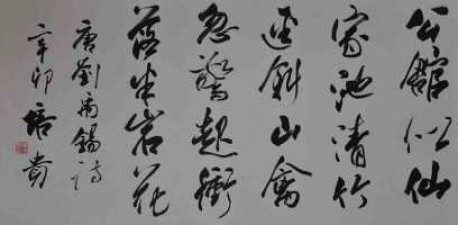 公館似仙
家池清竹
逕斜山禽
忽驚起衝
落半岩花
唐劉禹錫詩
辛卯培貴